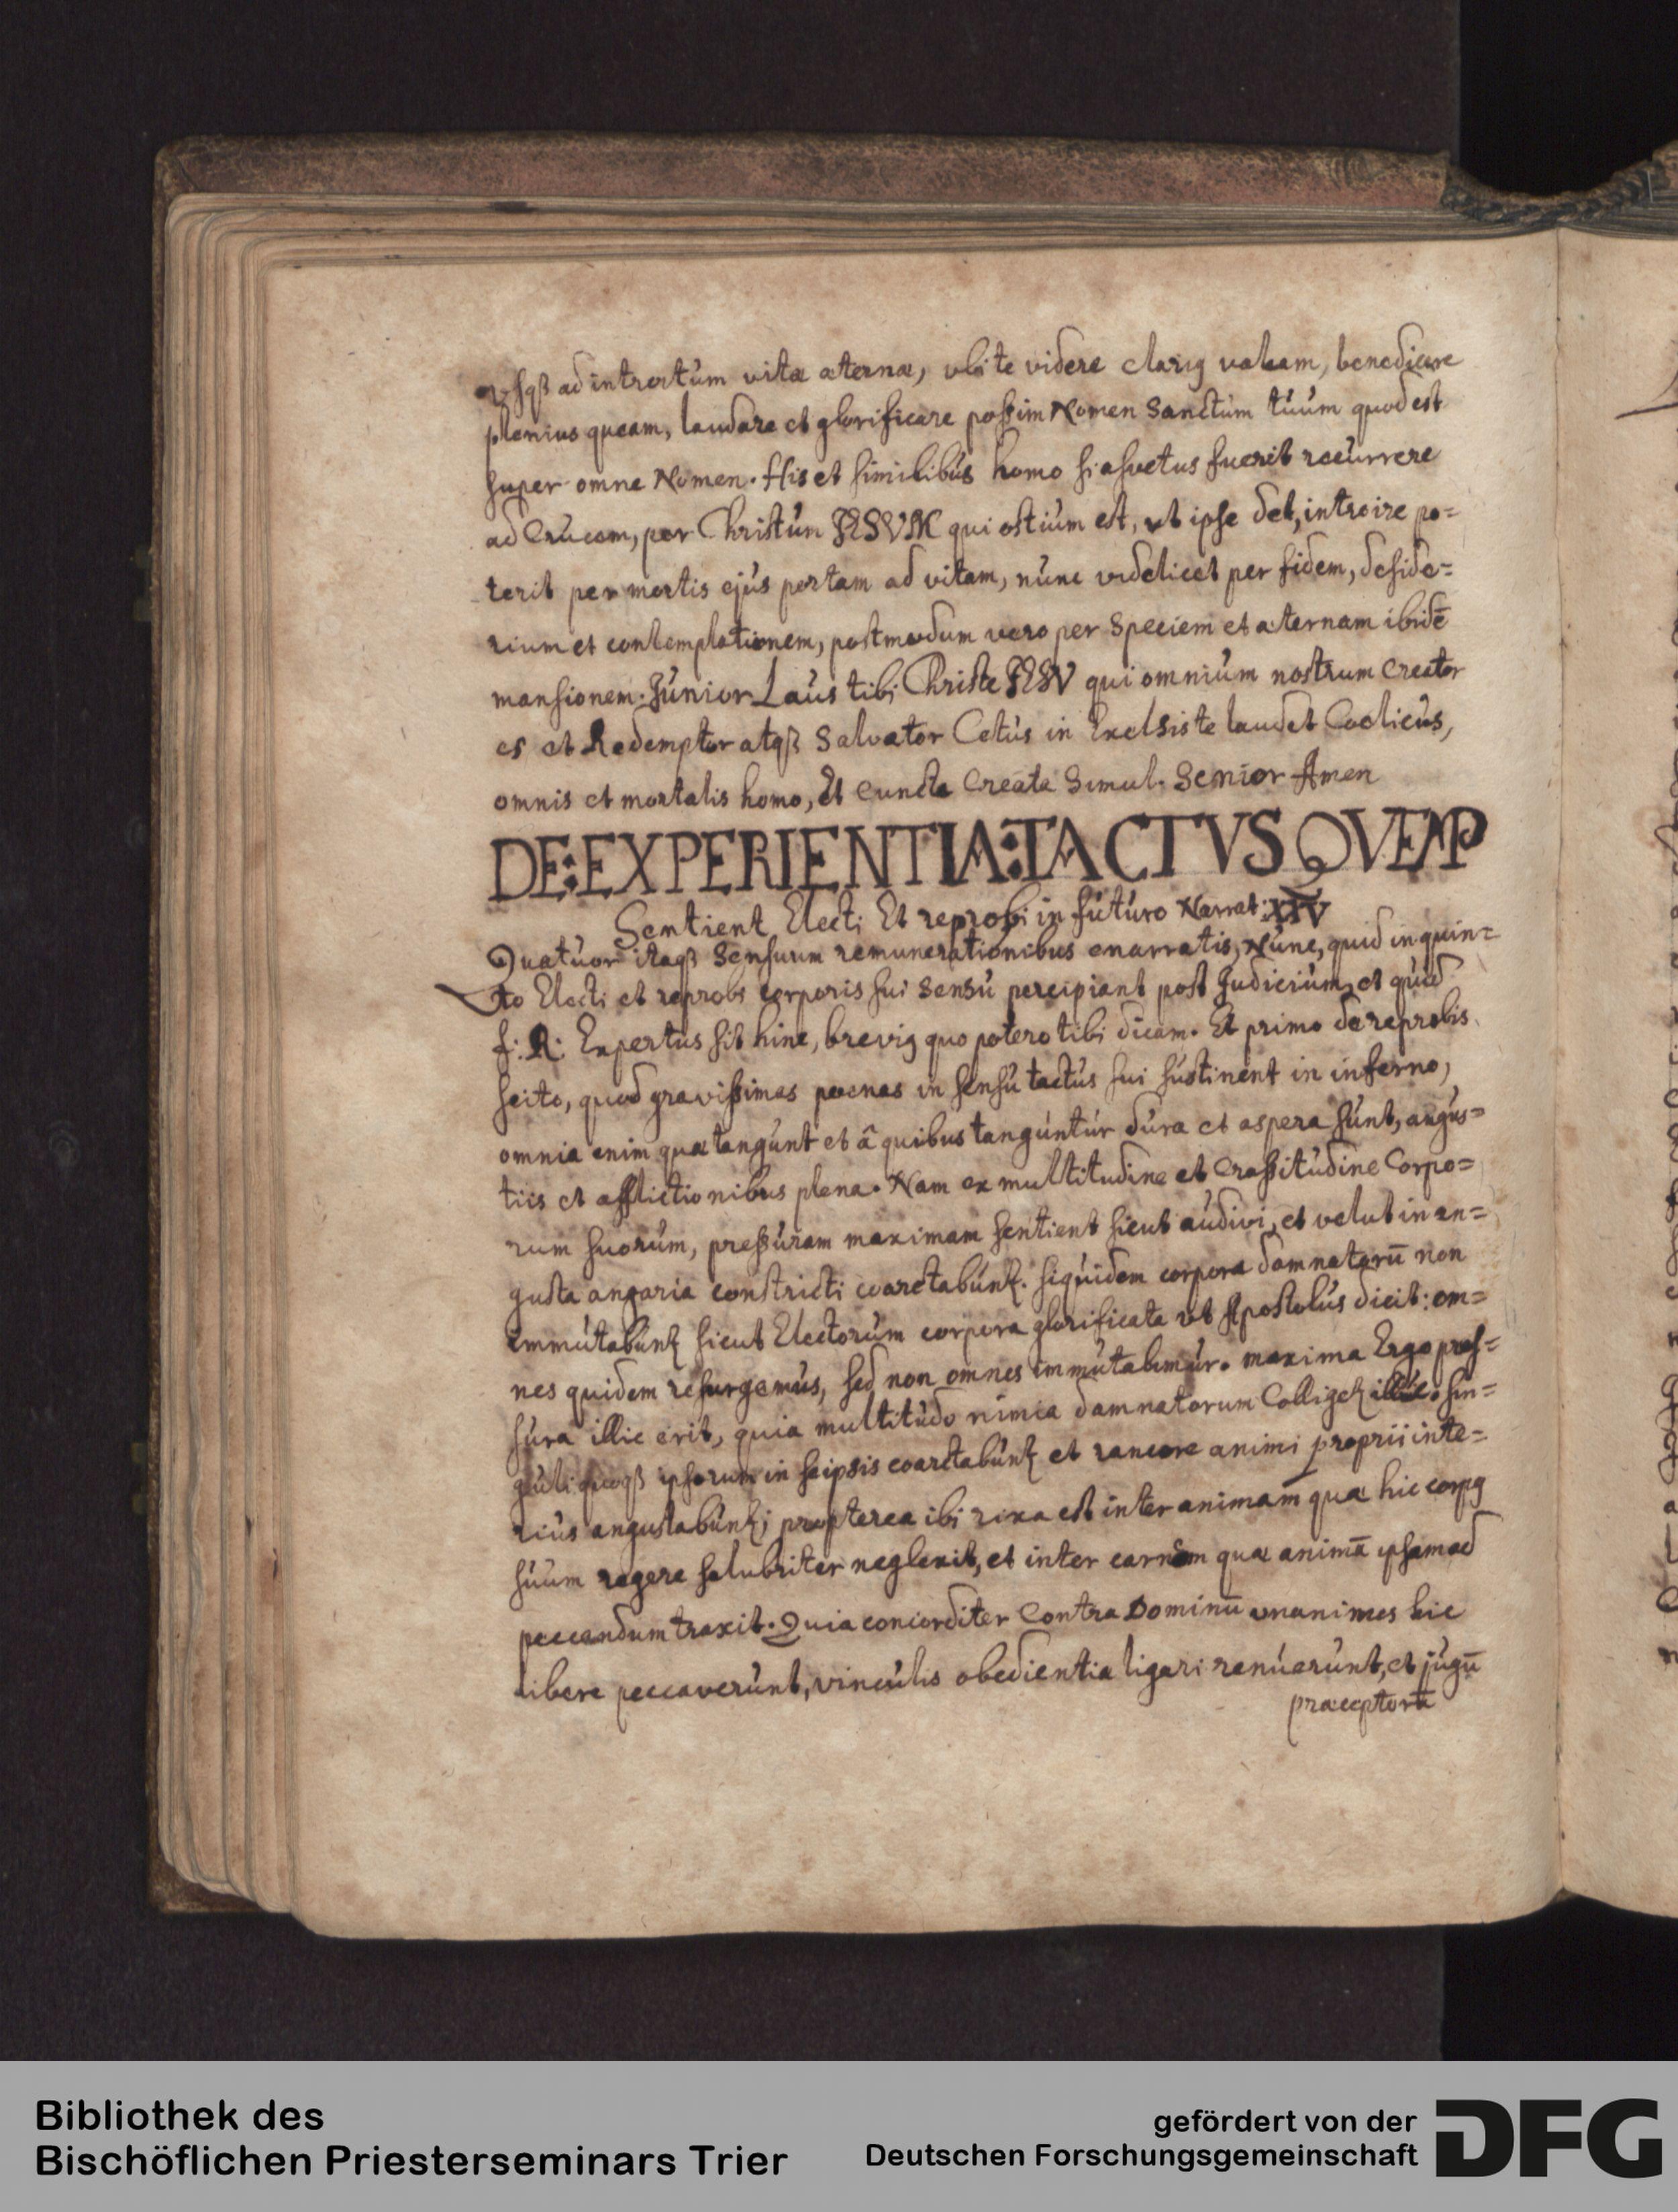 vsqß ad introitum vitæ æternæ, vbi te videre clarig valeam, benedicere
plenius queam, laudare et glorificare possim Nomen Sanctum tuum quod est
super omne Nomen. His et similibus homo si asvetus fuerit recurrere
ad Crucem, per Christum IESVM qui ostium est, vt ipse det, introire po=
terit per mortis ejus portam ad vitam, nunc videlicet per fidem, deside=
rium et contemplationem, postmodum vero per Speciem et æternam ibidē
mansionem. Junior Laus tibi Christe IESV qui omnium nostrum Creator
es et Redemptor atqß Salvator Cetus in Excelsis te laudet Coelicus,
omnis et mortalis homo, Et cuncta Creata Simul. Senior Amen
DE:EXPERIENTIA:TACTVS QVEMP
Sentient Electi Et reprobi in futuro Narrat: XIV
Quatuor itaqß Sensuum remunerationibus enarratis, Nunc, quid in quin=
to Electi et reprobi corporis sui Sensu percipiant post Judicium, et quid
f: R: Expertus sit hinc, brevig quo potero tibi dicam. Et primo de reprobis
scito, quod gravissimas poenas in sensu tactus sui sustinent in inferno,
omnia enim quæ tangunt et â quibus tanguntur dura et aspera sunt, angus=
tiis et afflictionibus plena. Nam ex multitudine et Crassitudine Corpo=
rum suorum, pressuram maximam sentient sicut audivi, et velut in an=
gusta angaria constricti coarctabunt. siquidem corpora damnatorū non
immutabunt sicut Electorum corpora glorificata vt Apostolus dicit: om=
nes quidem resurgemus, sed non omnes immutabimur. maxima Ergo pres=
sura illic erit, quia multitudo nimia damnatorum Colliget illuc. sin=
guli quoqß ipsorum in seipsis coarctabunt et rancore animi proprii inte=
rius angustabunt; propterea ibi rixa est inter animam quæ hic corpg
suum regere salubriter neglexit, et inter carnem quæ animā ipsam ad
peccandum traxit. Quia concorditer Contra Dominū unanimes hic
libere peccaverunt, vinculis obedientia ligari renuerunt, et jugū
præceptorū
Bibliothek des
Bischöflichen Priesterseminars Trier
gefördert von der
Deutschen Forschungsgemeinschaft
DFG